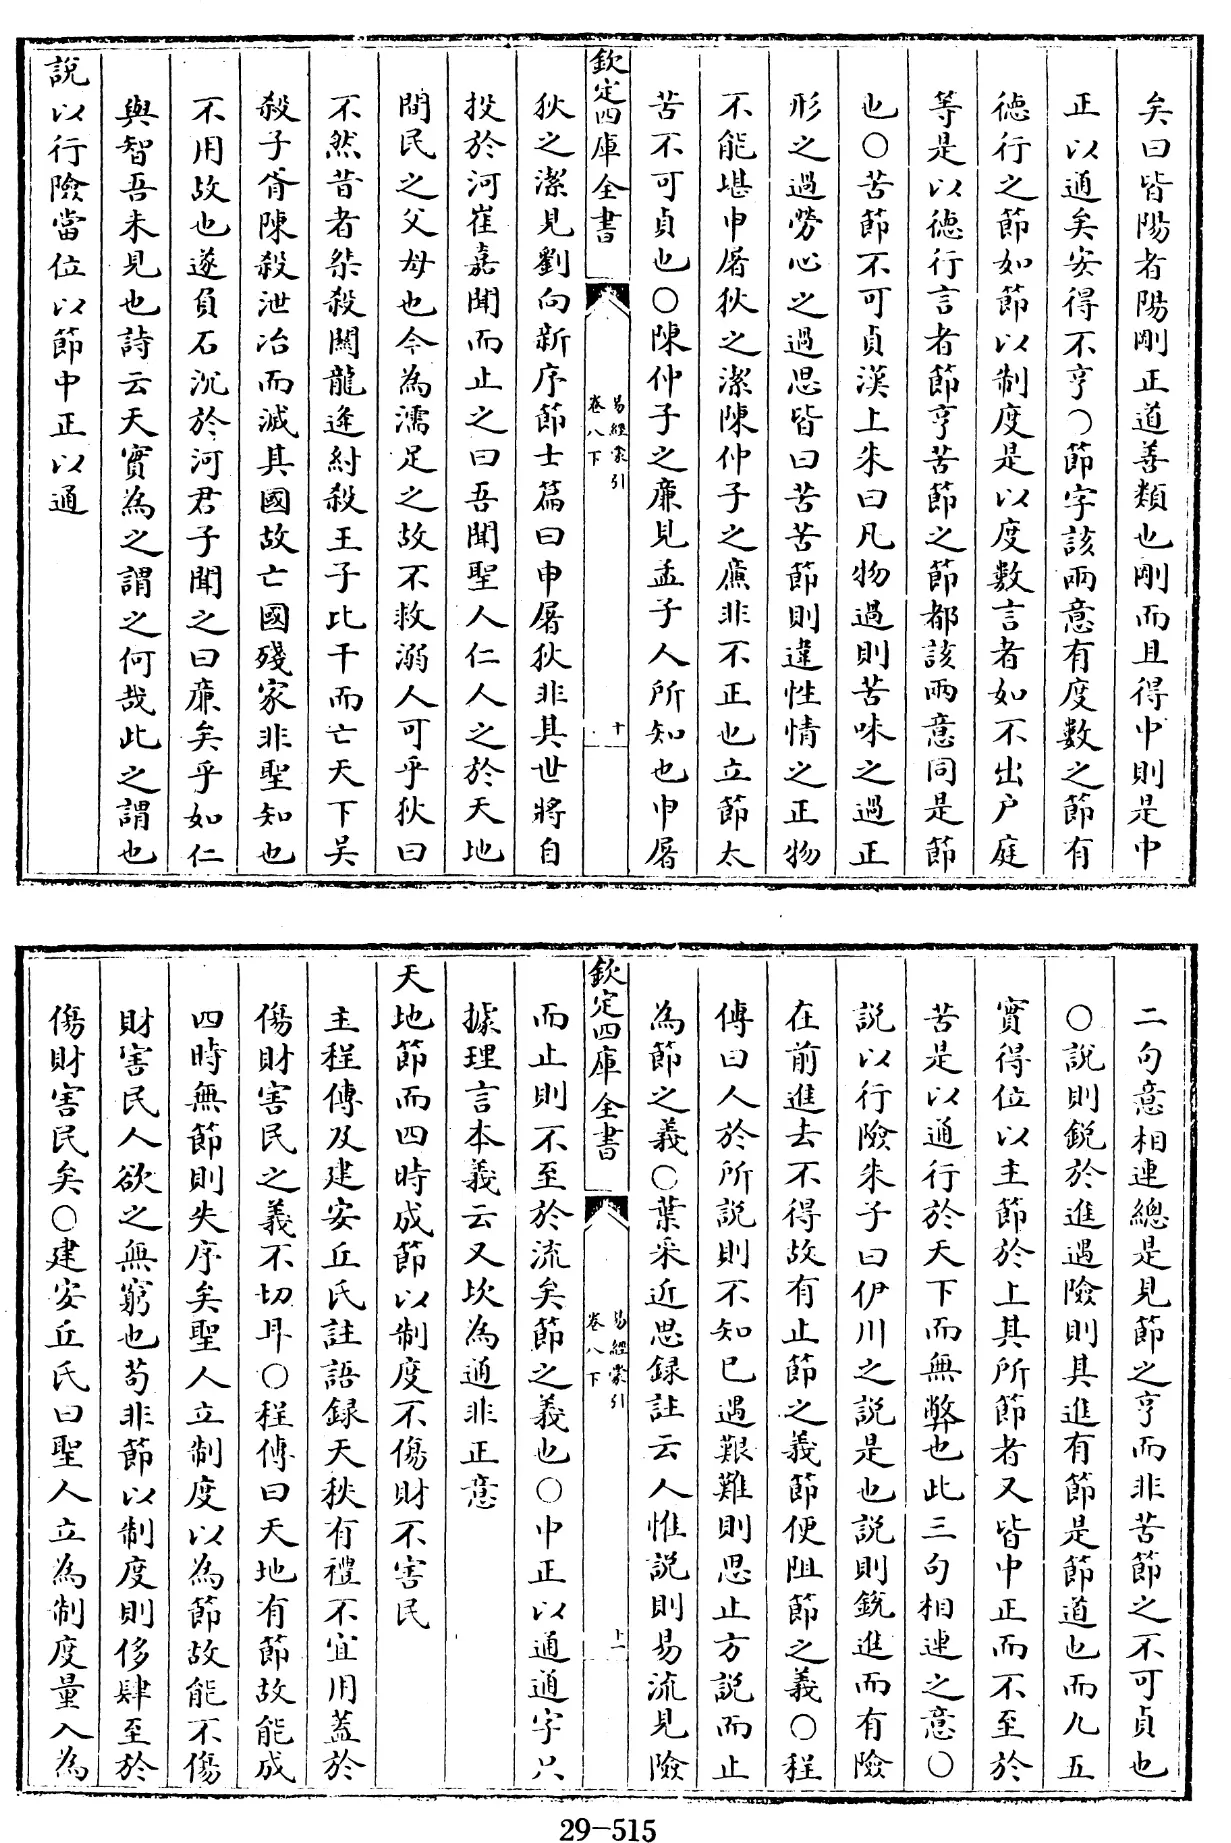 矣曰皆陽者陽剛正道善類也剛而且得中則是中
正以通矣安得不亨○節字該兩意有度數之節有
德行之節如節以制度是以度數言者如不出户庭
等是以德行言者節亨苦節之節都該兩意同是節
也○苦節不可貞漢上朱曰凡物過則苦味之過正
形之過勞心之過思皆曰苦苦節則違性情之正物
不能堪申屠狄之潔陳仲子之廉非不正也立節太
苦不可貞也○陳仲子之廉見孟子人所知也申屠
欽定四庫全書
易經蒙引
卷八下
十
狄之潔見劉向新序節士篇曰申屠狄非其世將自
投於河崔嘉聞而止之曰吾聞聖人仁人之於天地
間民之父母也今為濡足之故不救溺人可乎狄曰
不然昔者桀殺關龍逄紂殺王子比干而亡天下吴
殺子胥陳殺泄冶而滅其國故亡國殘家非聖知也
不用故也遂負石沉於河君子聞之曰廉矣乎如仁
與智吾未見也詩云天實為之謂之何哉此之謂也
說以行險當位以節中正以通
二句意相連總是見節之亨而非苦節之不可貞也
○說則銳於進遇險則其進有節是節道也而九五
實得位以主節於上其所節者又皆中正而不至於
苦是以通行於天下而無弊也此三句相連之意○
説以行險朱子曰伊川之説是也説則銳進而有險
在前進去不得故有止節之義節便阻節之義○程
傳曰人於所説則不知已遇艱難則思止方説而止
為節之義○葉采近思録註云人惟説則易流見險
欽定四庫全書
易經蒙引
卷八下
十一
而止則不至於流矣節之義也○中正以通通字只
據理言本義云又坎為通非正意
天地節而四時成節以制度不傷財不害民
主程傳及建安丘氏註語録天秩有禮不宜用蓋於
傷財害民之義不切耳○程傳曰天地有節故能成
四時無節則失序矣聖人立制度以為節故能不傷
財害民人欲之無窮也苟非節以制度則侈肆至於
傷財害民矣○建安丘氏曰聖人立為制度量入為
29-515